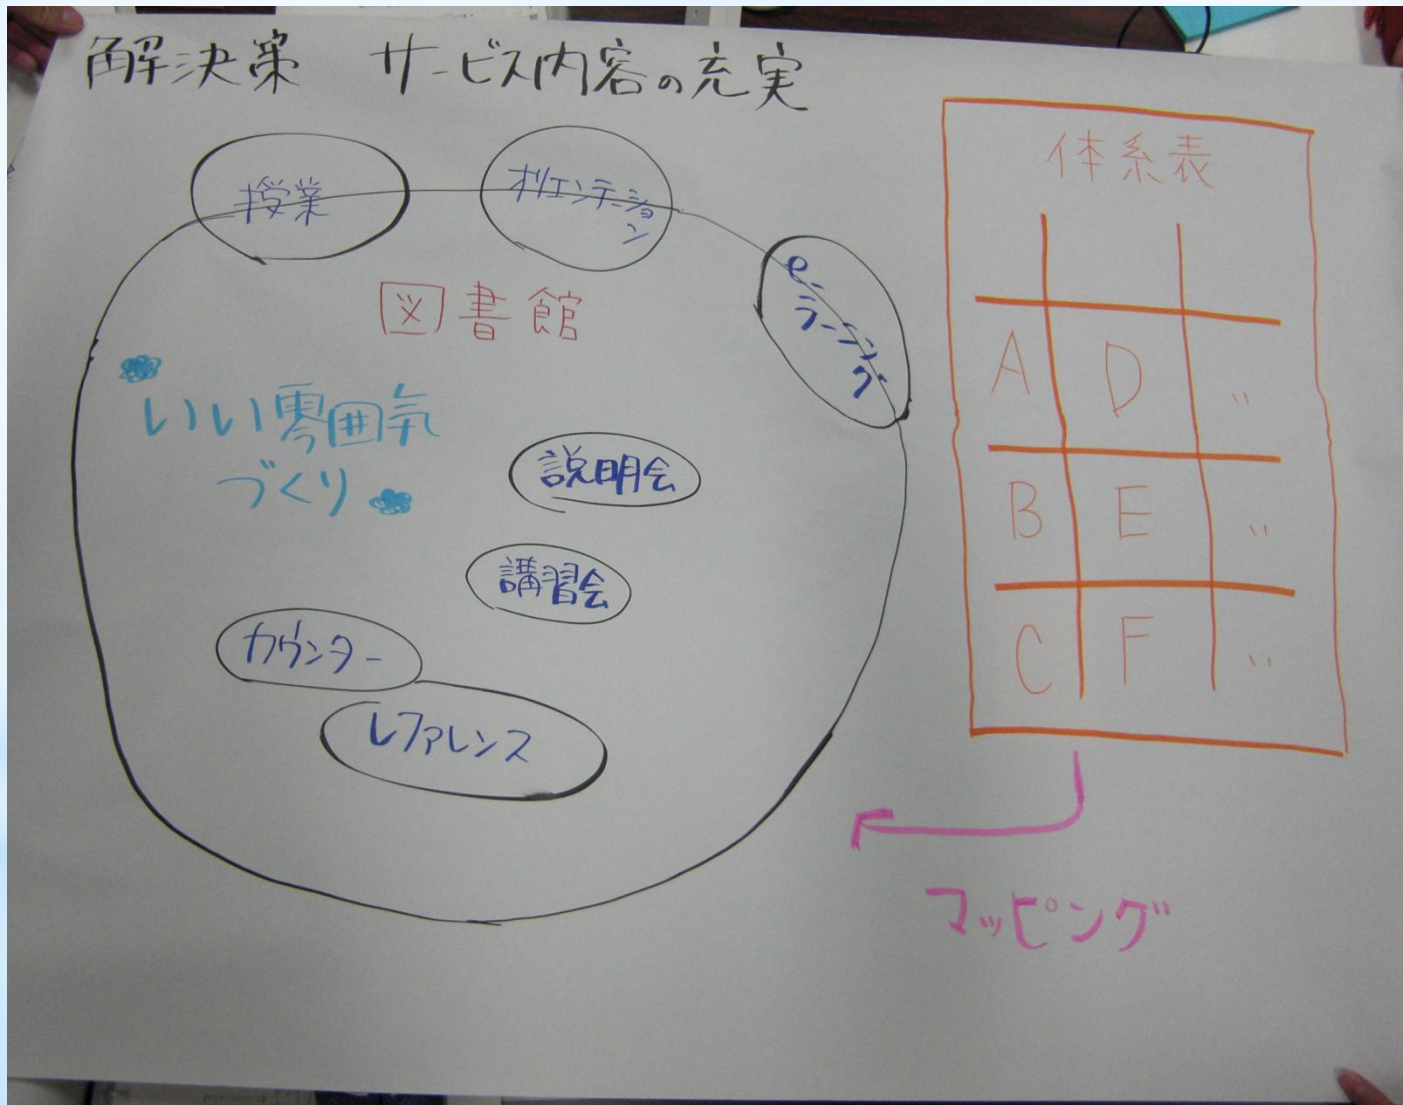 解決策　サービス内容の充実
授業
オリエンテーション
e-ラーニング
図書館
いい雰囲気
づくり
説明会
講習会
カウンター
レファレンス
体系表
A D 〃
B E 〃
C F 〃
マッピング